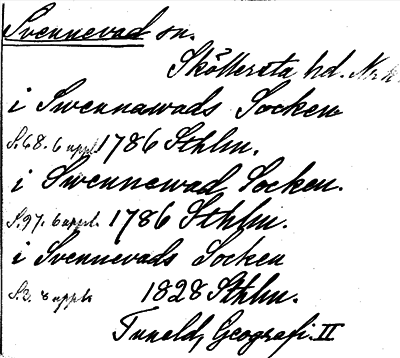 Svennevad sn.
Sköllersta hd. Nrk
i Swennawads Socken
S. 68. 6 uppl. 1786 Sthlm.
i Swennewad Socken.
S. 97. 6 uppl. 1786 Sthlm.
i Svennevads Socken
S. 2. 8 uppl. 1828 Sthlm.
Tuneld, Geografi. II